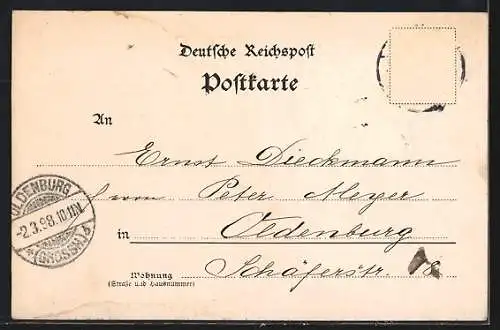 Deutsche Reichspost
Postkarte
An
Ernst Dieckmann
Herrn Peter Meyer
in Oldenburg
Wohnung Schäferstr. 18
(Straße und Hausnummer)
OLDENBURG
-2.3.98.10-11N
(GROSSH.)